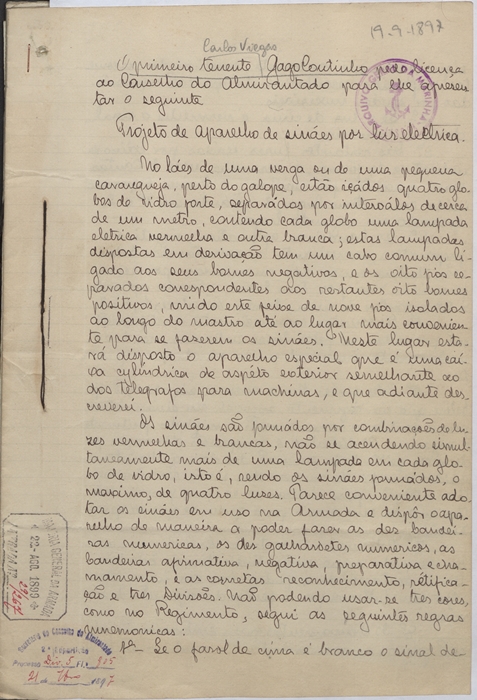 19-9-1897
Carlos Viegas
O primeiro tenente Gago Coutinho pede licença
ao Conselho do Almirantado para lhe apresen
tar o seguinte
Projéto de aparelho de sináes por luz electrica.
No láes de uma verga ou de uma pequena
carangueja, perto do galope, estão içádos quatro glo-
bos de vidro forte, separádos por interválos de cerca
de um metro, contendo cada globo uma lampada
eletrica vermelha e outra branca; estas lampadas
dispostas em derivação tem um cabo comum li-
gado aos seus bornes negativos, e os oito fios se-
parados correspondentes aos restantes oito bornes
positivos, unido este feixe de nove fios isolados
ao longo do mastro até ao lugar mais convenien-
te para se fazerem os sináes. Neste lugar esta-
rá disposto o aparelho especial que é uma cai-
xa cylíndrica de aspéto exterior semelhante ao
dos telegrafos para machinas, e que adiante des-
creverei.
Os sináes são formádos por combinações de lu-
zes vermelhas e brancas, não se acendendo simul-
taneamente mais de uma lampada em cada glo-
bo de vidro, isto é, sendo os sináes formádos, o
maximo, de quatro luses. Parece conveniente ado-
tar os sináes em uso na Armada e dispôr o apa-
relho de maneira a poder fazer as des bandei-
ras numericas, os des galhardetes numericos, as
bandeiras afirmativa, negativa, preparativa e cha-
mamento, e as cornetas reconhecimento, rétifica-
ção e tres Divisões. Não podendo usar-se tres côres,
como no Regimento, segui as seguintes regras
mnemonicas:
1ª— Se o farol de cima é branco o sinal de